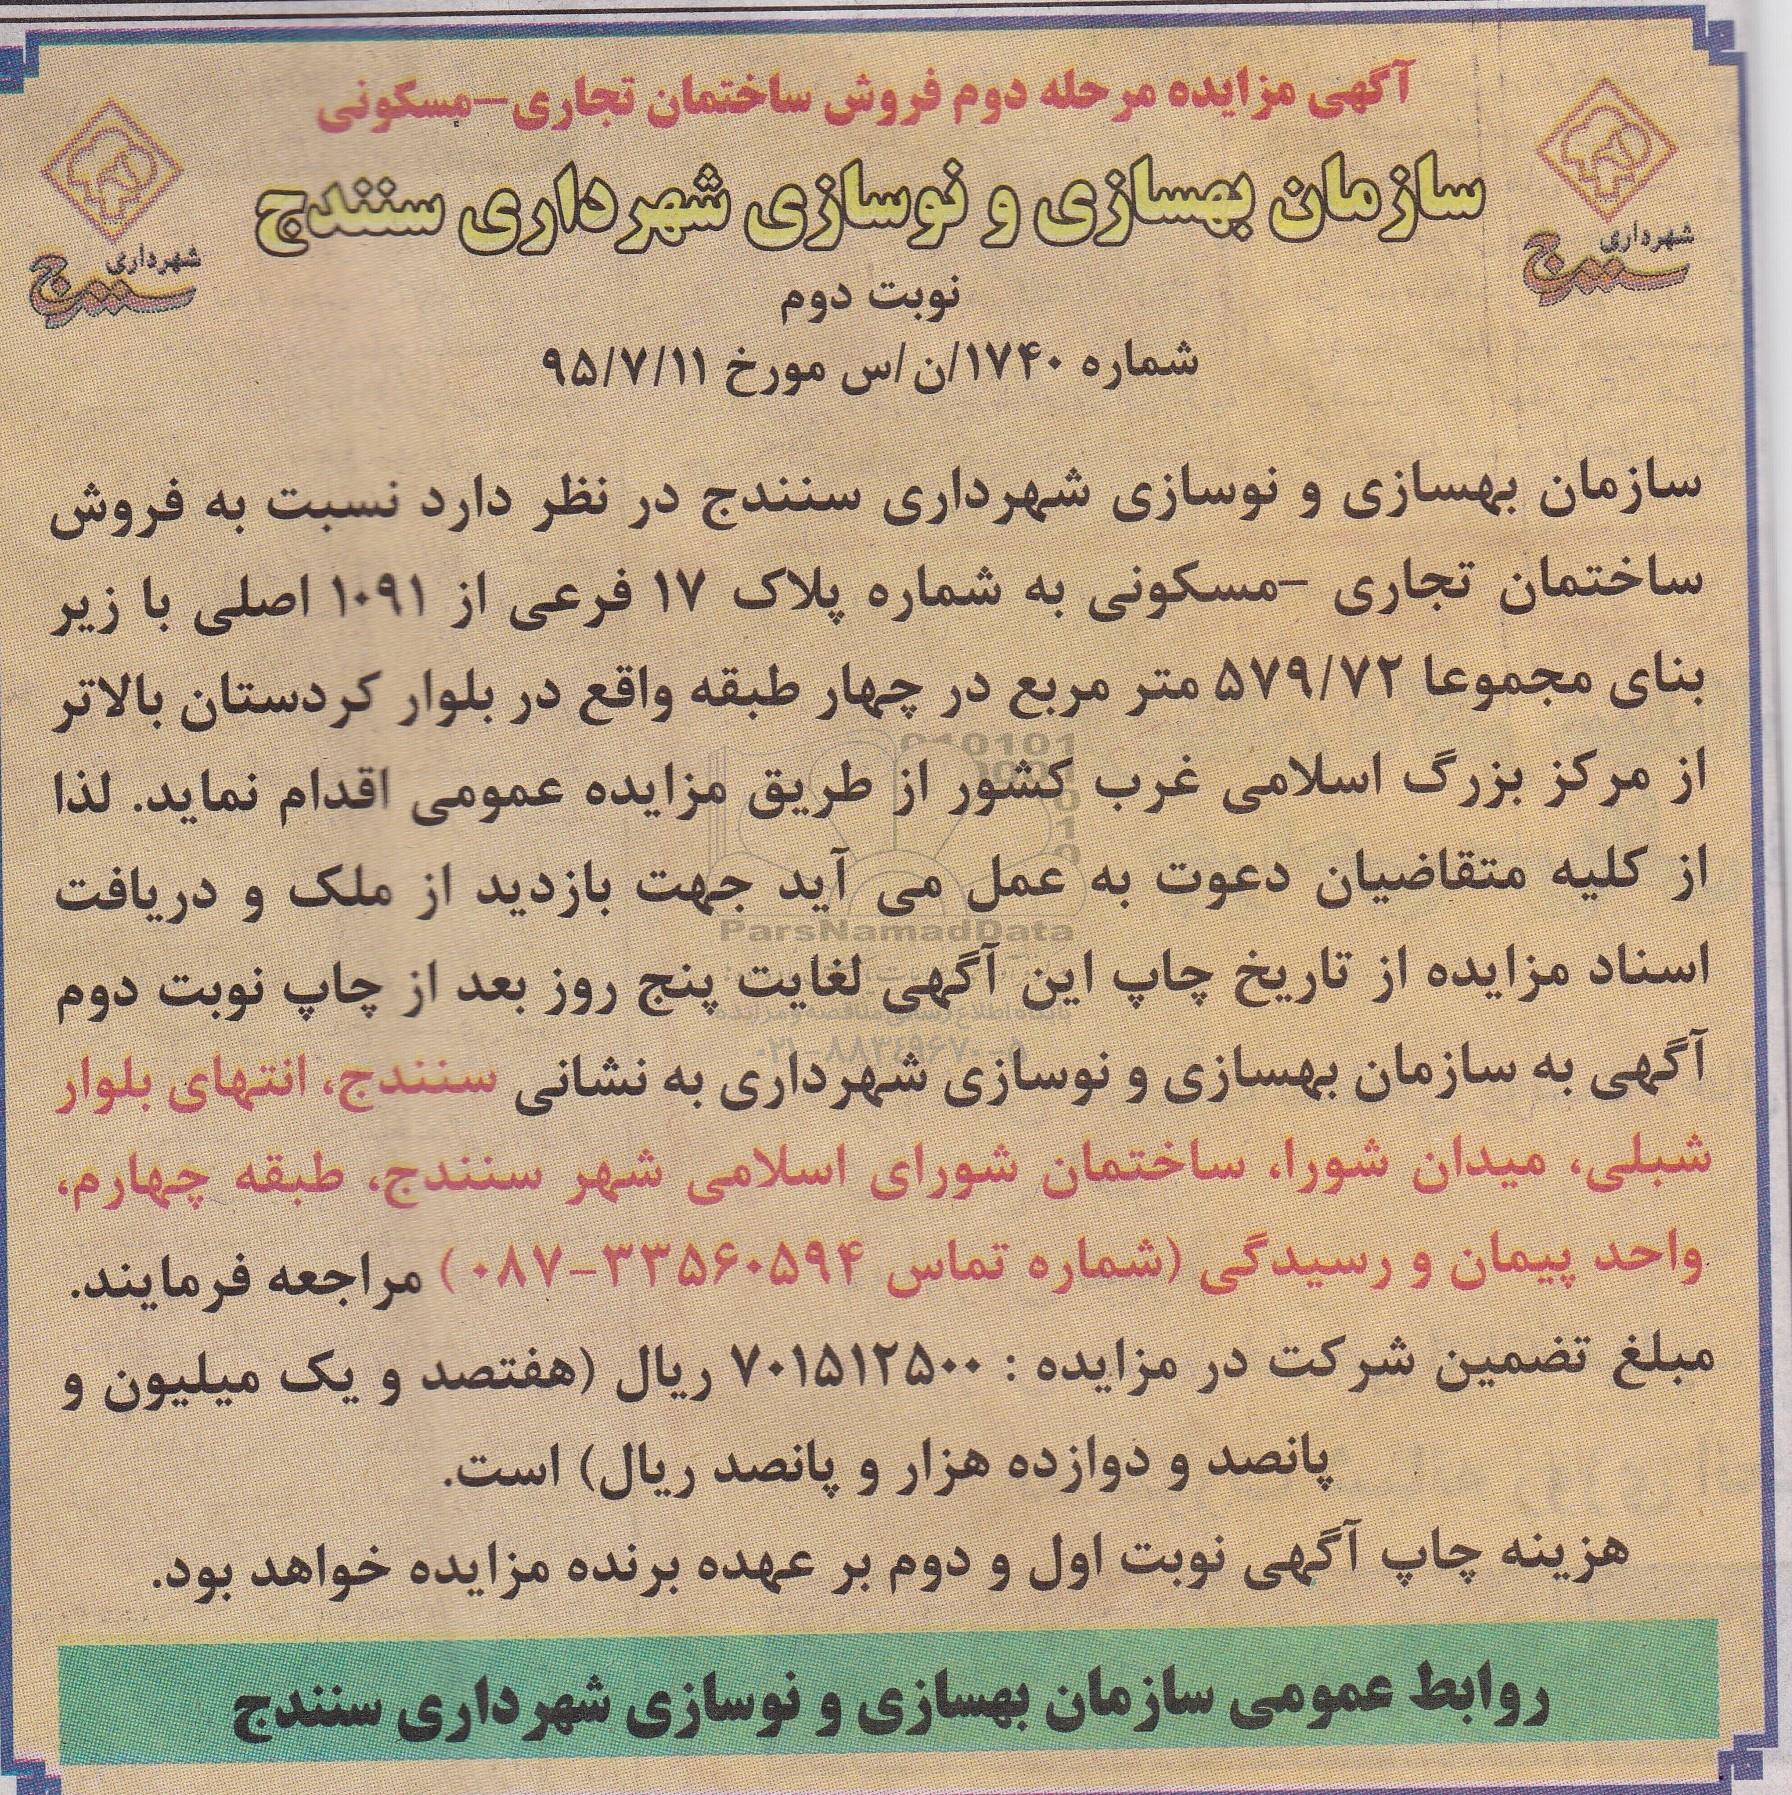 آگهی مزایده مرحله دوم فروش ساختمان تجاری-مسکونی
سازمان بهسازی و نوسازی شهرداری سنندج
شهرداری سنندج
شهرداری سنندج
نوبت دوم
شماره ۱۷۴۰/ن/س مورخ ۹۵/۷/۱۱
سازمان بهسازی و نوسازی شهرداری سنندج در نظر دارد نسبت به فروش
ساختمان تجاری -مسکونی به شماره پلاک ۱۷ فرعی از ۱۰۹۱ اصلی با زیر
بنای مجموعا ۵۷۹/۷۲ متر مربع در چهار طبقه واقع در بلوار کردستان بالاتر
از مرکز بزرگ اسلامی غرب کشور از طریق مزایده عمومی اقدام نماید. لذا
از کلیه متقاضیان دعوت به عمل می آید جهت بازدید از ملک و دریافت
اسناد مزایده از تاریخ چاپ این آگهی لغایت پنج روز بعد از چاپ نوبت دوم
آگهی به سازمان بهسازی و نوسازی شهرداری به نشانی سنندج، انتهای بلوار
شبلی، میدان شورا، ساختمان شورای اسلامی شهر سنندج، طبقه چهارم،
واحد پیمان و رسیدگی (شماره تماس ۳۳۵۶۰۵۹۴-۰۸۷) مراجعه فرمایند.
مبلغ تضمین شرکت در مزایده : ۷۰۱۵۱۲۵۰۰ ریال (هفتصد و یک میلیون و
پانصد و دوازده هزار و پانصد ریال) است.
هزینه چاپ آگهی نوبت اول و دوم بر عهده برنده مزایده خواهد بود.
روابط عمومی سازمان بهسازی و نوسازی شهرداری سنندج
ParsNamadData
پایگاه اطلاع رسانی مناقصه و مزایده
۰۲۱-۸۸۳۴۹۶۷۰-۵